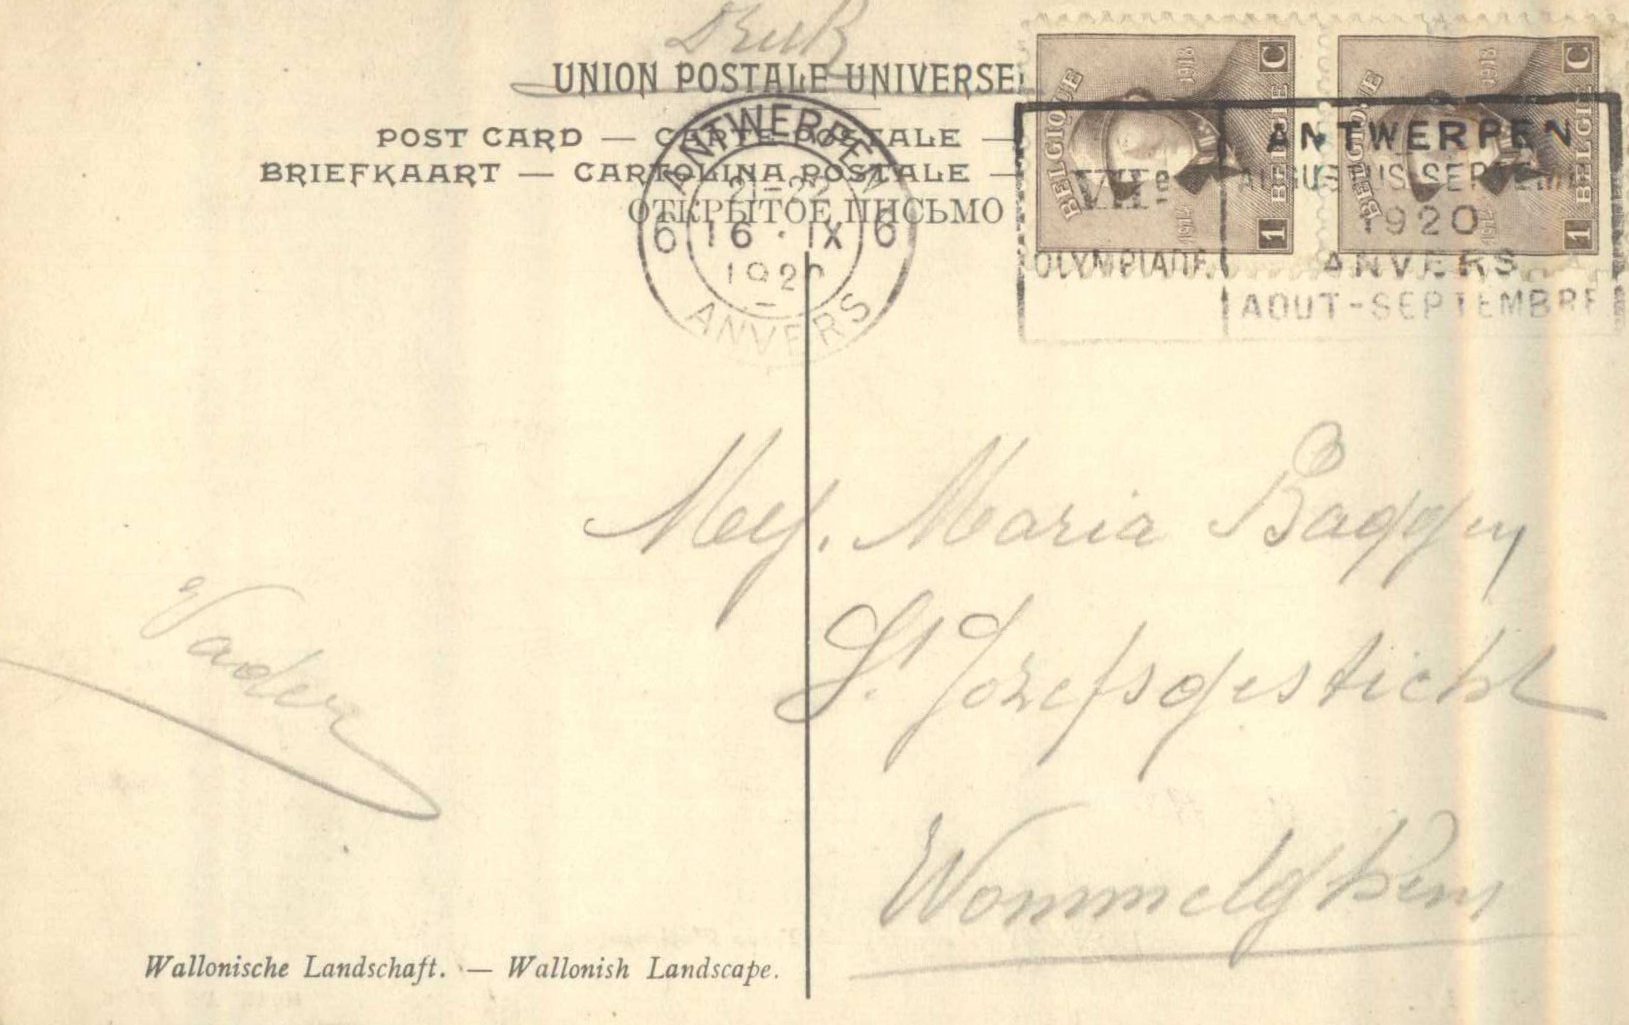 Druk
UNION POSTALE UNIVERSEL
POST CARD — CARTE POSTALE —
BRIEFKAART — CARTOLINA POSTALE —
ОТКРЫТОЕ ПИСЬМО
ANTWERPEN
21-22
6 16 · IX 6
1920
ANVERS
BELGIQUE 1914 1918 BELGIE 1 C
BELGIQUE 1914 1918 BELGIE 1 C
VIIe
OLYMPIADE
ANTWERPEN
AUGUSTUS-SEPTEMBER
1920
ANVERS
AOUT-SEPTEMBRE
Mej. Maria Baggen
St Jozefsgesticht
Wommelghem
Vader
Wallonische Landschaft. — Wallonish Landscape.